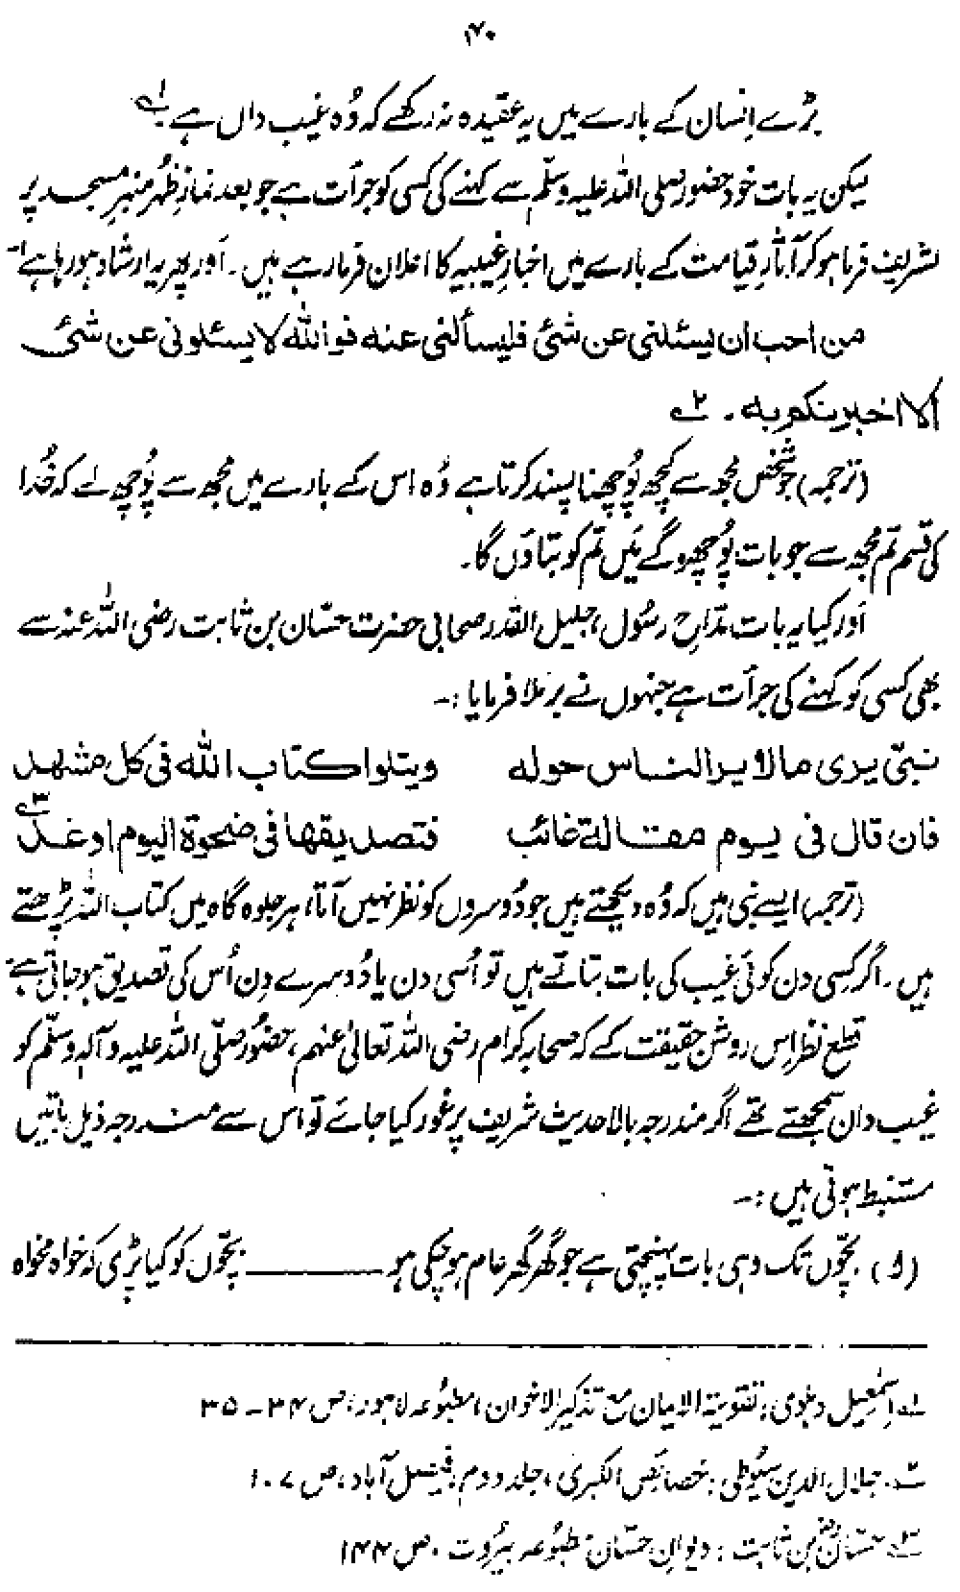 ۱۷۰
بڑے انسان کے بارے میں یہ عقیدہ نہ رکھے کہ وُہ غیب داں ہے ۱ے
لیکن یہ بات خود حضور صلی اللہ علیہ وسلّم سے کہنے کی کسی کو جرأت ہے جو بعد نمازِ ظہر منبرِ مسجد پر
تشریف فرما ہو کر آثارِ قیامت کے بارے میں اخبارِ غیبیہ کا اعلان فرما رہے ہیں۔ اَور پھر یہ ارشاد ہو رہا ہے۔
من احب ان یسئلنی عن شئ فلیسألنی عنه فوالله لا یسئلونی عن شئ
الا اخبرتکم به۔ ۲ے
(ترجمہ) جو شخص مجھ سے کچھ پُوچھنا پسند کرتا ہے وُہ اس کے بارے میں مجھ سے پُوچھ لے کہ خُدا
کی قسم تم مجھ سے جو بات پُوچھو گے مَیں تم کو بتا دَں گا۔
اَور کیا یہ بات مدّاحِ رسُول، جلیل القدر صحابی حضرت حسّان بن ثابت رضی اللہ عنہ سے
بھی کسی کو کہنے کی جرأت ہے جنہوں نے برملا فرمایا :۔
نبیّ یری مالا یر الناس حوله ویتلوا کتاب الله فی کل مشهد
فان قال فی یوم مقالة غائب فتصدیقها فی ضحوة الیوم اوغد ۳ے
(ترجمہ) ایسے نبی ہیں کہ وُہ دیکھتے ہیں جو دُوسروں کو نظر نہیں آتا، ہر جلوہ گاہ میں کتاب اللہ پڑھتے
ہیں۔ اگر کسی دن کوئی غیب کی بات بتاتے ہیں تو اُسی دن یا دُوسرے دِن اُس کی تصدیق ہو جاتی ہے۔
قطع نظر اِس روشن حقیقت کے کہ صحابہ کرام رضی اللہ تعالیٰ عنہم، حضُور صلّی اللہ علیہ وآلہٖ وسلّم کو
غیب دان سمجھتے تھے اگر مندرجہ بالا حدیث شریف پر غور کیا جائے تو اس سے مندرجہ ذیل باتیں
مستنبط ہوتی ہیں :۔
(۱) بچّوں تک وہی بات پہنچتی ہے جو گھر گھر عام ہو چکی ہو ــــــــــ بچّوں کو کیا پڑی کہ خواہ مخواہ
۱ے۔ اسمٰعیل دہلوی: تقویۃ الایمان مع تذکیر الاخوان، مطبُوعہ لاہور، ص ۳۴ـ۳۵
۲ے۔ جلال الدین سیُوطی: خصائص الکبریٰ، جلد دوم، فیصل آباد، ص ۱۰۷
۳ے حسّان بن ثابت : دیوانِ حسّان مطبُوعہ بیرُوت، ص ۱۴۴